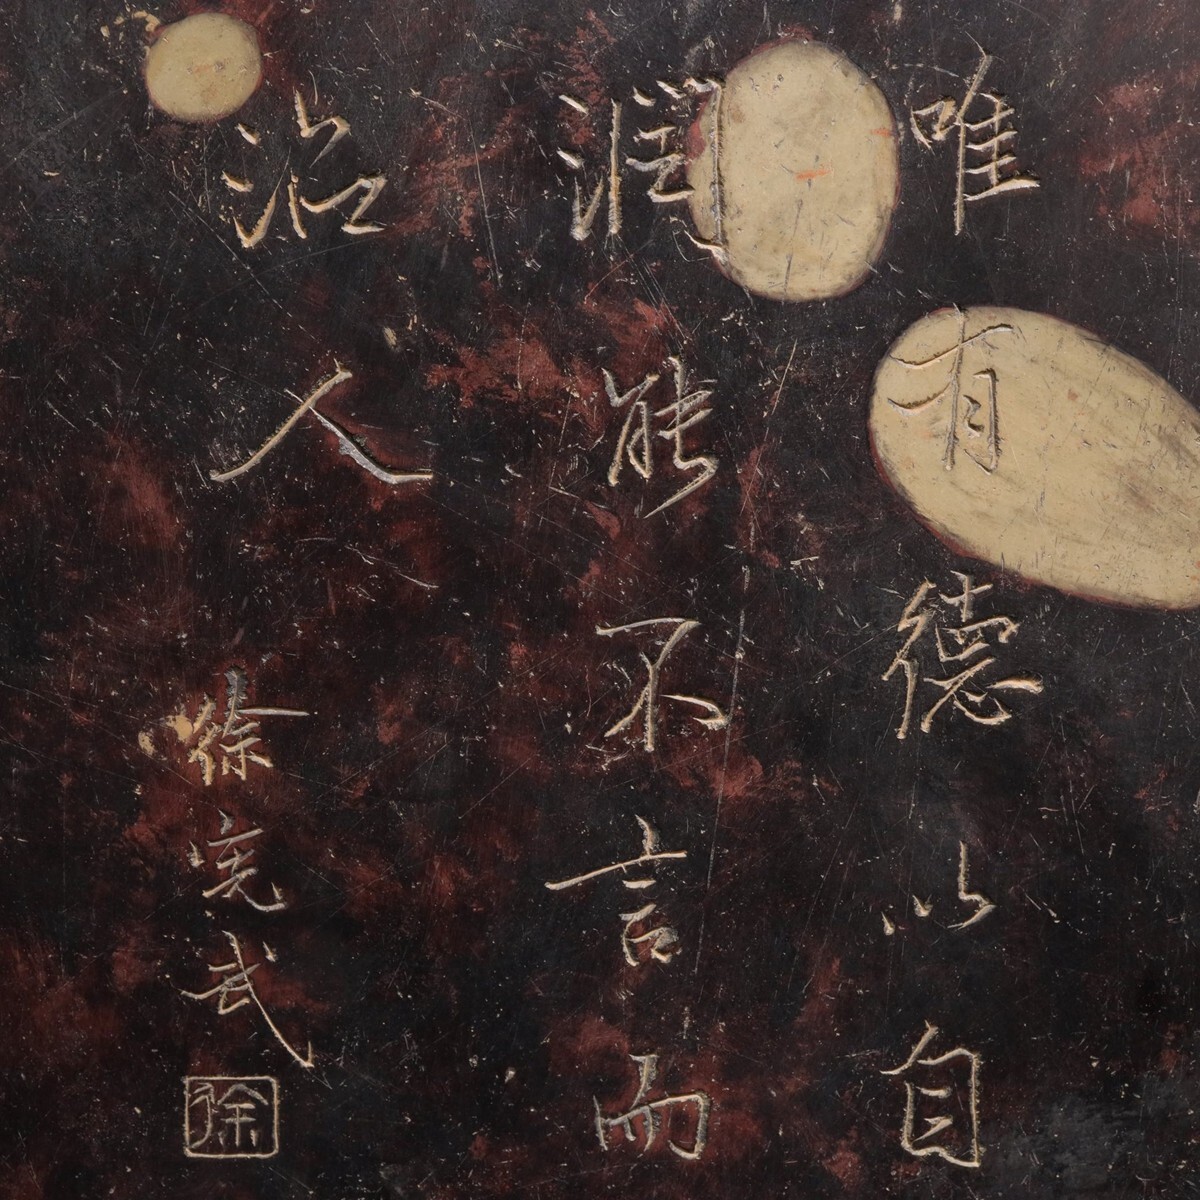 唯有德以自
潤能不言而
治人
徐完武
徐